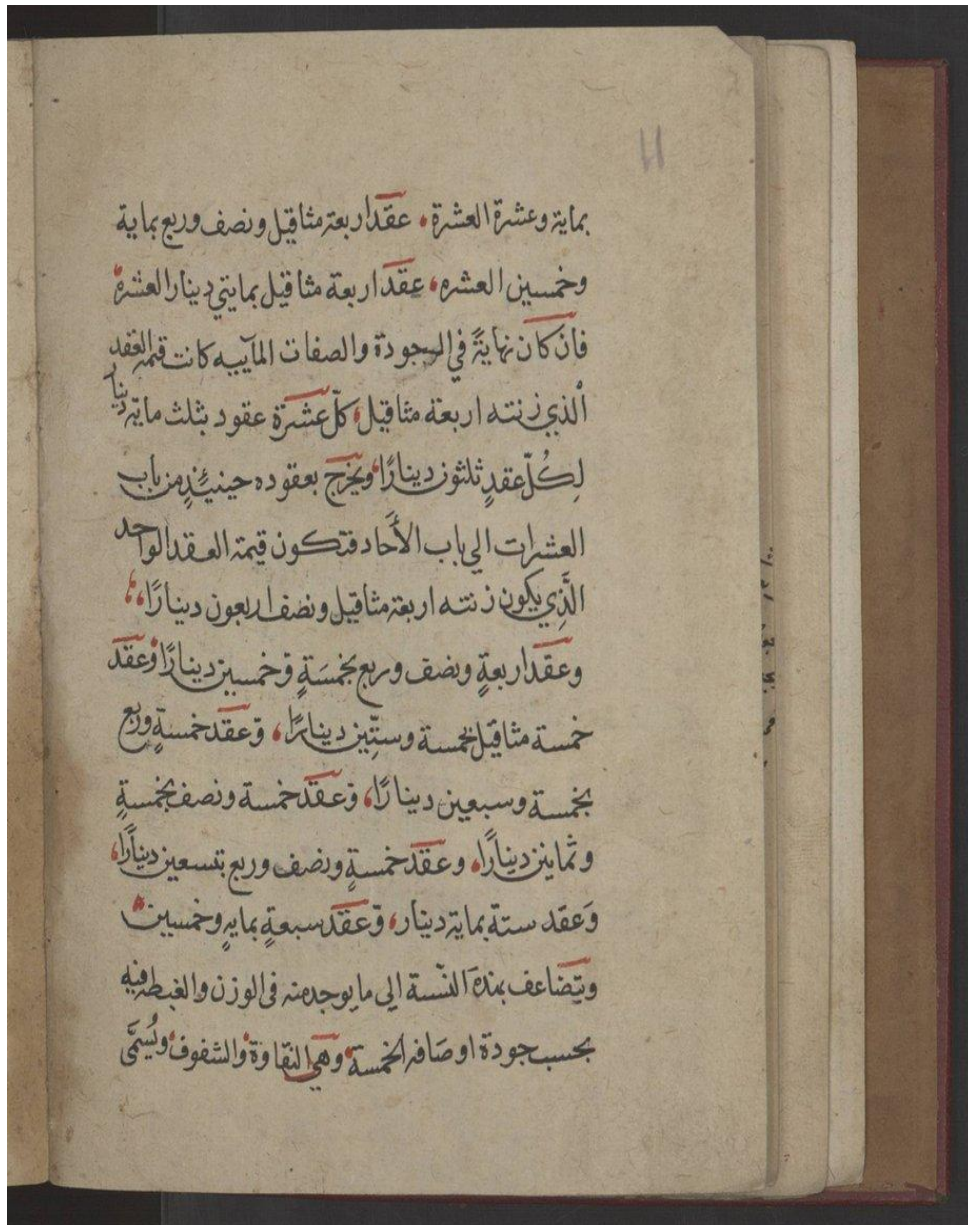 11
بماية وعشرة العشرة، عقد اربعة مثاقيل ونصف وربع بماية
وخمسين العشره، عقد اربعة مثاقيل بمايتي دينار العشرة
فان كان نهايةً في الجودة والصفات المآييه كانت قيمة العقد
الذي زنته اربعة مثاقيل، كلّ عشرة عقود بثلث ماية دينار
لِكُلّ عقدٍ ثلثون دينارًا، ويخرج بعقوده حينئذٍ من باب
العشرات الي باب الأحاد فتكون قيمة العقد الواحد
الَّذِي يكون زنته اربعة مثاقيل ونصف اربعون دينارًا،،
وعقد اربعةٍ ونصف وربع بخمسَةٍ وَخمسين دينارًا، وعقد
خمسة مثاقيل بخمسة وستّين دينارًا، وَعقد خمسةٍ وربع
بخمسة وسبعين دينارًا، وَعقد خمسة ونصف بخمسةٍ
وثمانين دينارًا، وعقد خمسةٍ ونصف وربع بتسعين دينارًا،
وَعقد ستة بماية دينار، وَعقد سبعةٍ بمايةٍ وخمسين
ويتضاعف بهذه النّسبة الي ما يوجد منه في الوزن والغبطه فيه
بحسب جودة اوصافه الخمسة، وهي النقاوة، والشفوف، ويُسَمَّى